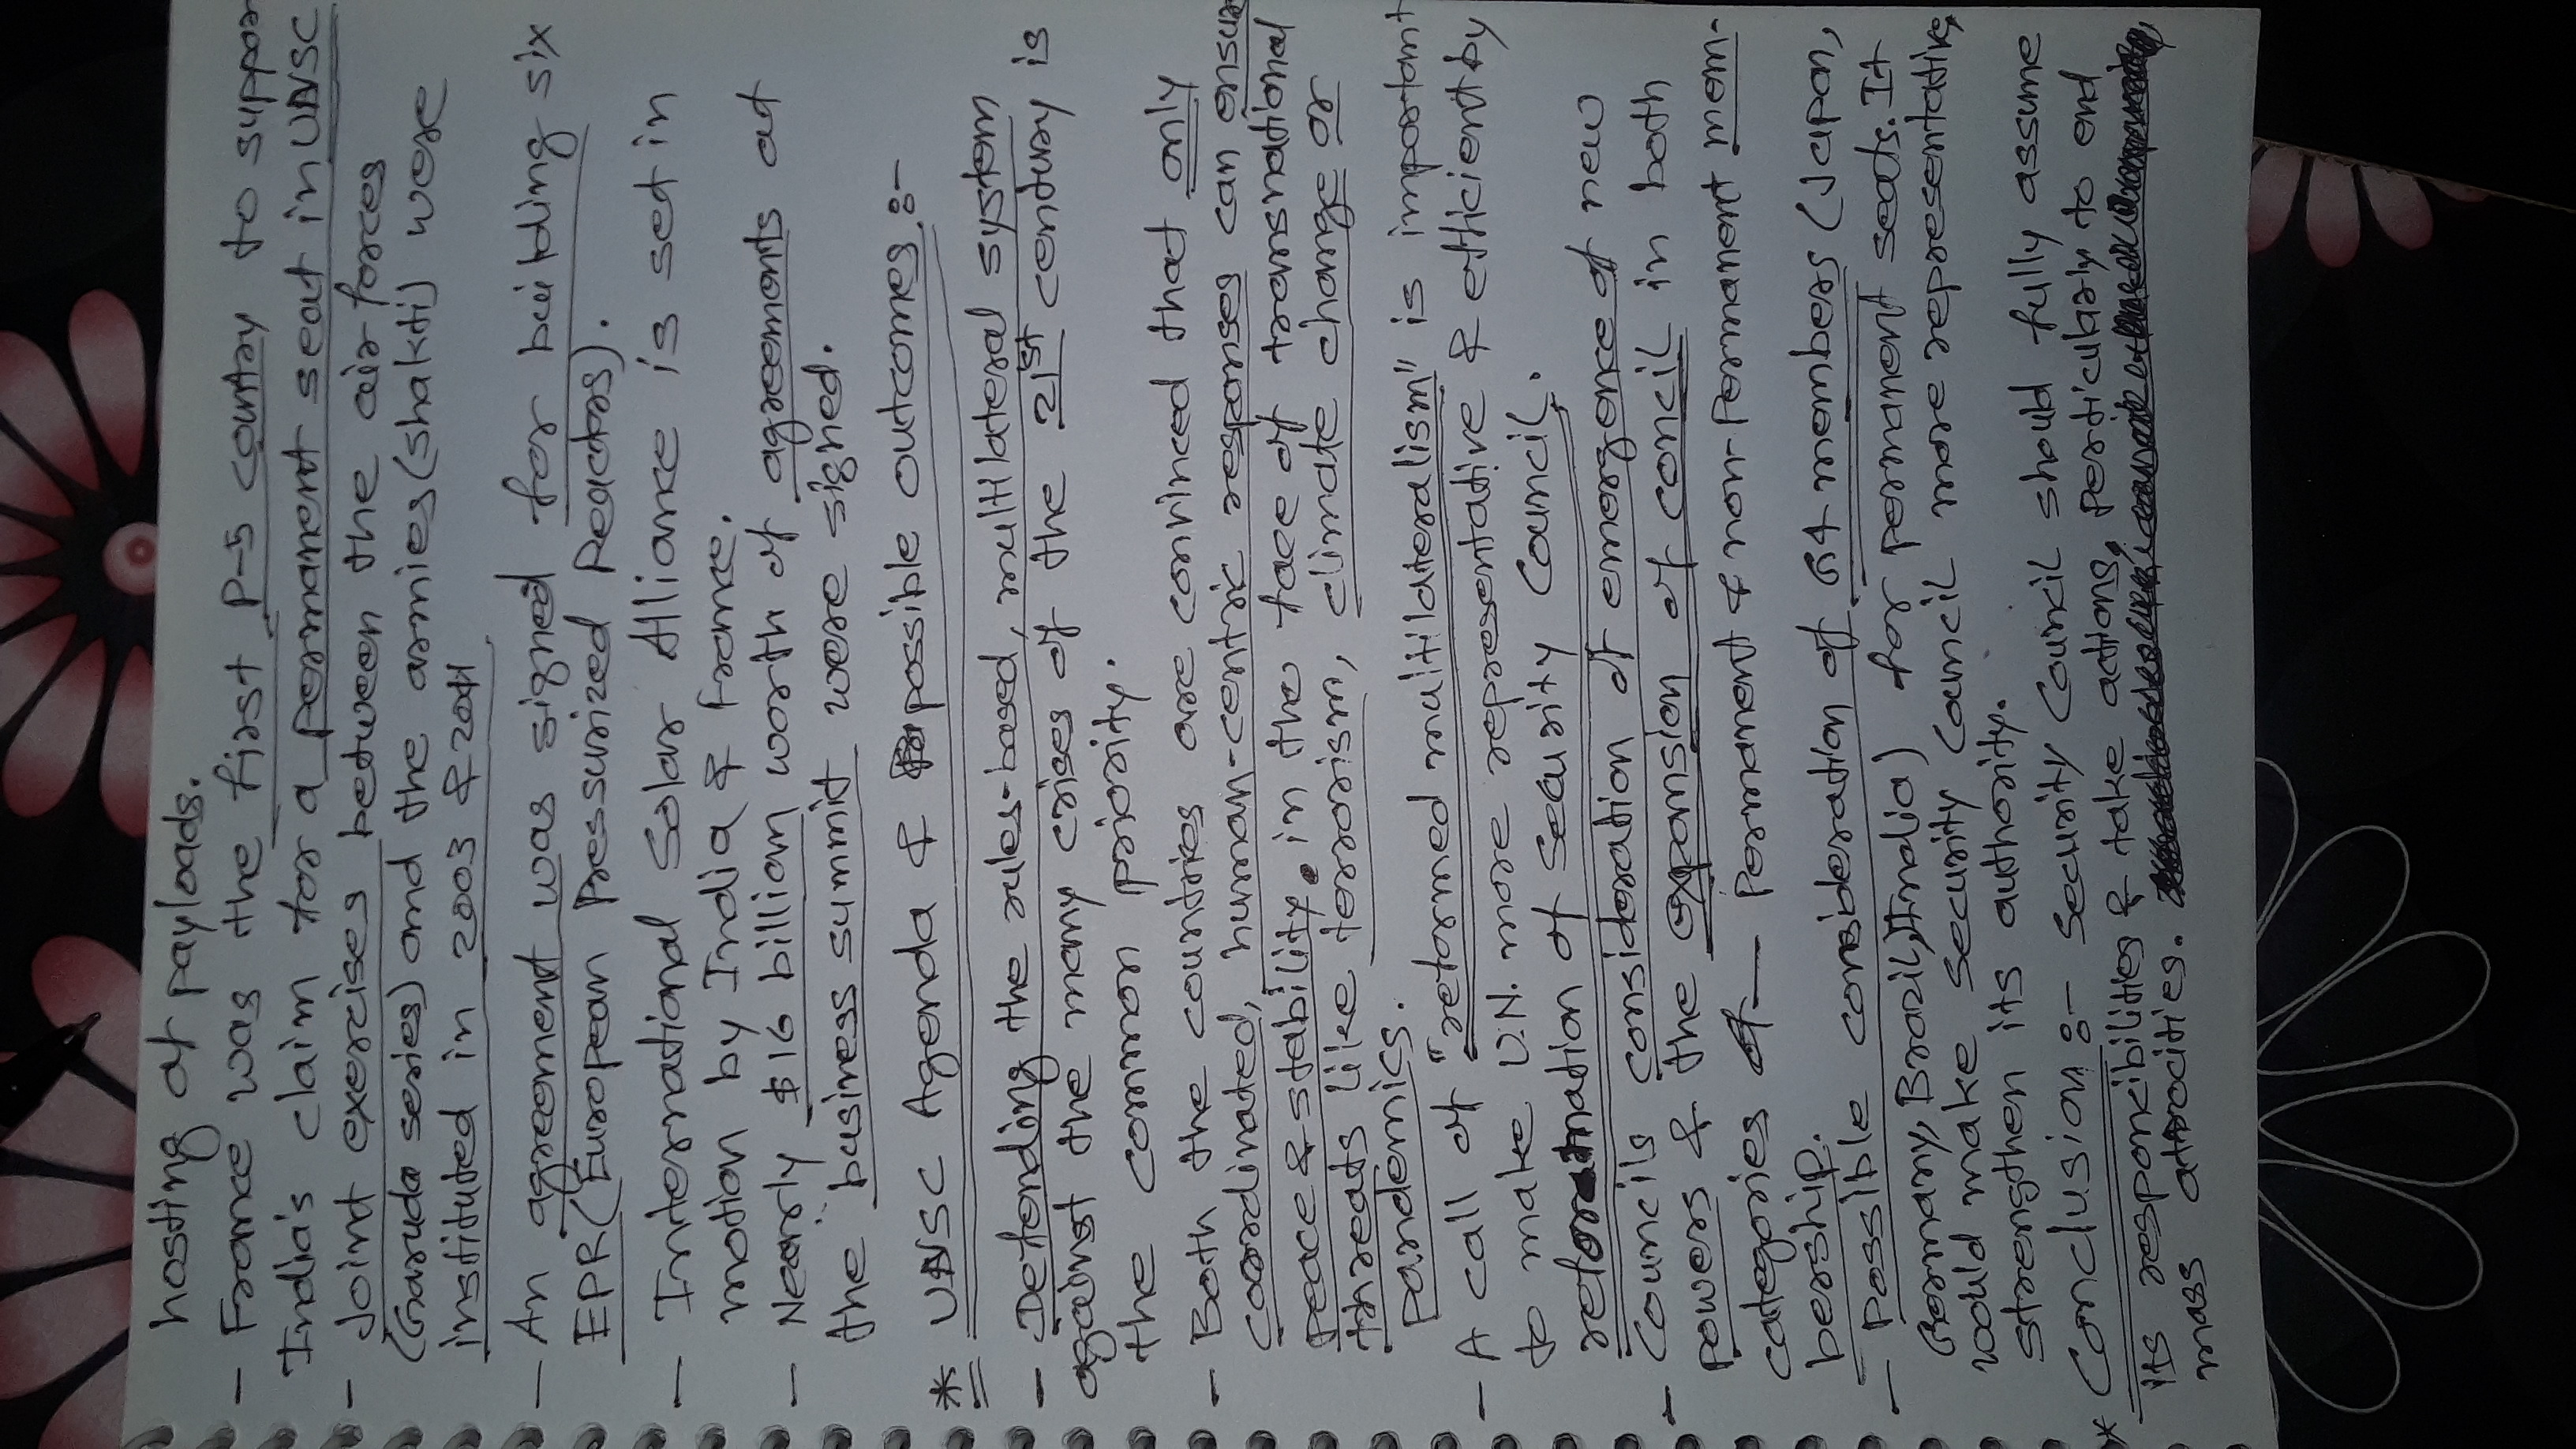 hosting of payloads.
- France was the first P-5 country to suppor
India's claim for a permanent seat in UNSC
- Joint exercises between the air forces
(Garuda series) and the armies (shakti) were
instituted in 2003 & 2011
- An agreement was signed for building six
EPR (European Pressurized Reactors).
- International Solar Alliance is set in
motion by India & France.
- Nearly $16 billion worth of agreements at
the business summit were signed.
* UNSC Agenda & possible outcomes :-
- Defending the rules-based, multilateral system
against the many crises of the 21st century is
the common priority.
- Both the countries are convinced that only
coordinated, human-centric responses can ensure
peace & stability in the face of transnational
threats like terrorism, climate change or
pandemics.
- A call of "reformed multilateralism" is important
to make U.N. more representative & efficient by
reformation of Security Council.
- Councils consideration of emergence of new
powers & the expansion of concil in both
categories - Permanent & non-Permanent mem-
bership.
- Possible consideration of G4 members (Japan,
Germany, Brazil, India) for permanent seats. It
would make security council more representative,
strengthen its authority.
* Conclusion :- Security Council should fully assume
its responcibilities & take actions, perticularly to end
mass atrocities.